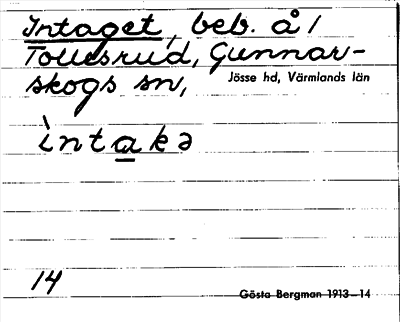 Intaget, beb. å 1
Tollesrud, Gunnar-
skogs sn,
Jösse hd, Värmlands län
ìntakə
14
Gösta Bergman 1913–14